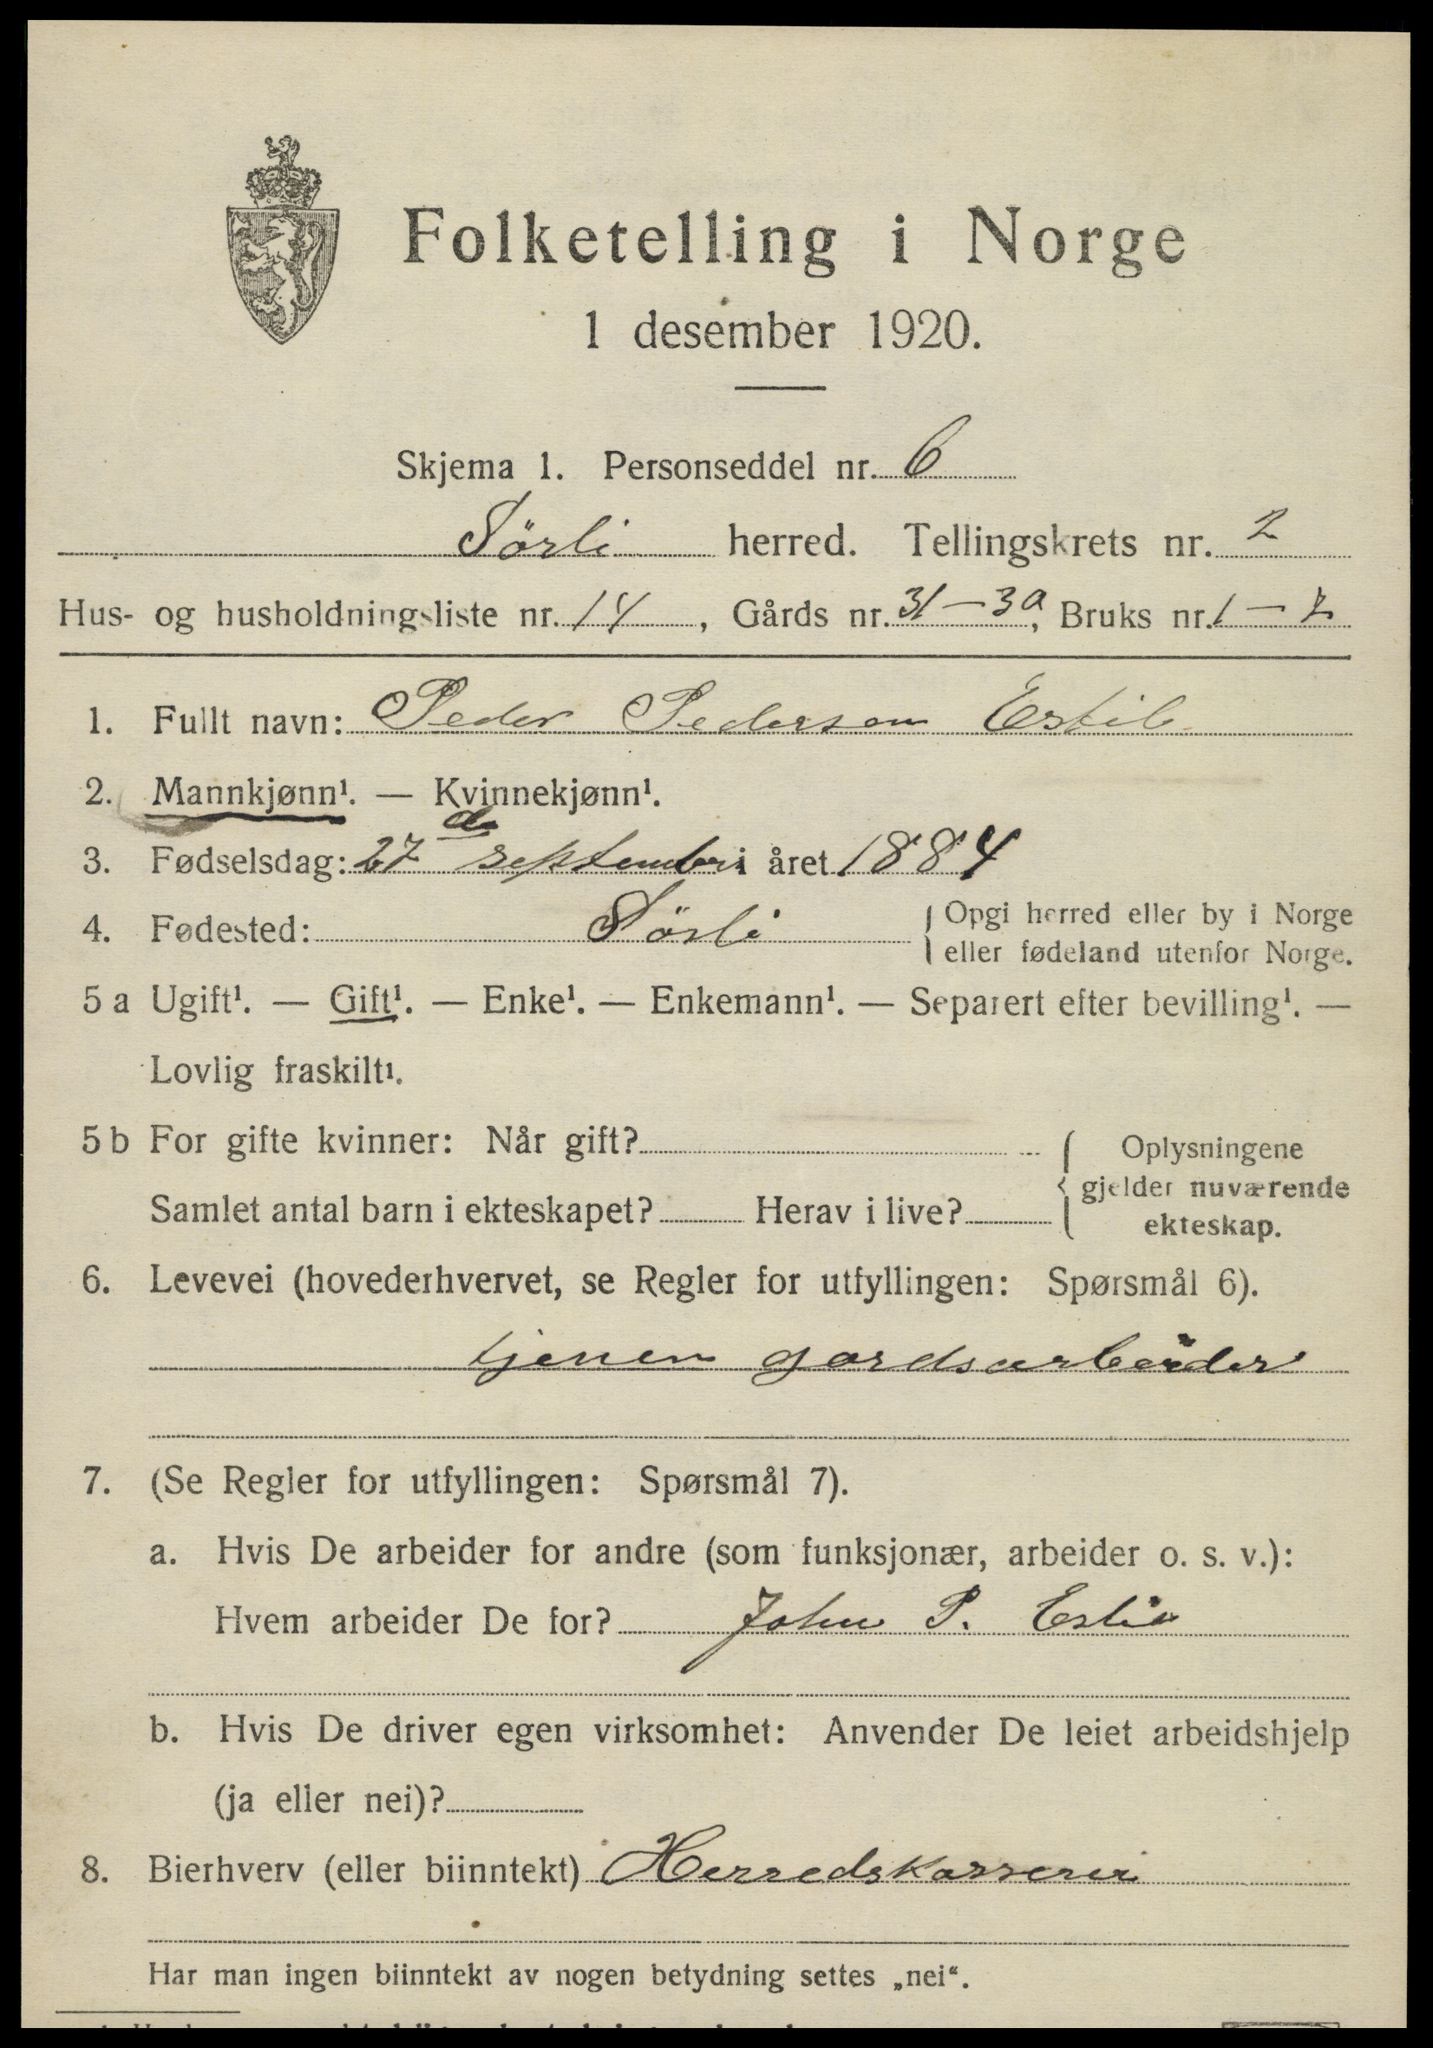 Folketelling i Norge
1 desember 1920.
Skjema 1. Personseddel nr. 6
Sörli herred. Tellingskrets nr. 2
Hus- og husholdningsliste nr. 14, Gårds nr. 31-3a, Bruks nr. 1-7
1. Fullt navn: Peder Pederson Estil
2. Mannkjønn¹. — Kvinnekjønn¹.
3. Fødselsdag: 27 de september i året 1884
4. Fødested: Sörli { Opgi herred eller by i Norge
eller fødeland utenfor Norge.
5 a Ugift¹. — Gift¹. — Enke¹. — Enkemann¹. — Separert efter bevilling¹. —
Lovlig fraskilt¹.
5 b For gifte kvinner: Når gift?
Samlet antal barn i ekteskapet? Herav i live?
{ Oplysningene
gjelder nuværende
ekteskap.
6. Levevei (hovederhvervet, se Regler for utfyllingen: Spørsmål 6).
tjener gardsarbeider
7. (Se Regler for utfyllingen: Spørsmål 7).
a. Hvis De arbeider for andre (som funksjonær, arbeider o. s. v.):
Hvem arbeider De for? John P. Estil
b. Hvis De driver egen virksomhet: Anvender De leiet arbeidshjelp
(ja eller nei)?
8. Bierhverv (eller biinntekt) Herredskasserer
Har man ingen biinntekt av nogen betydning settes „nei“.